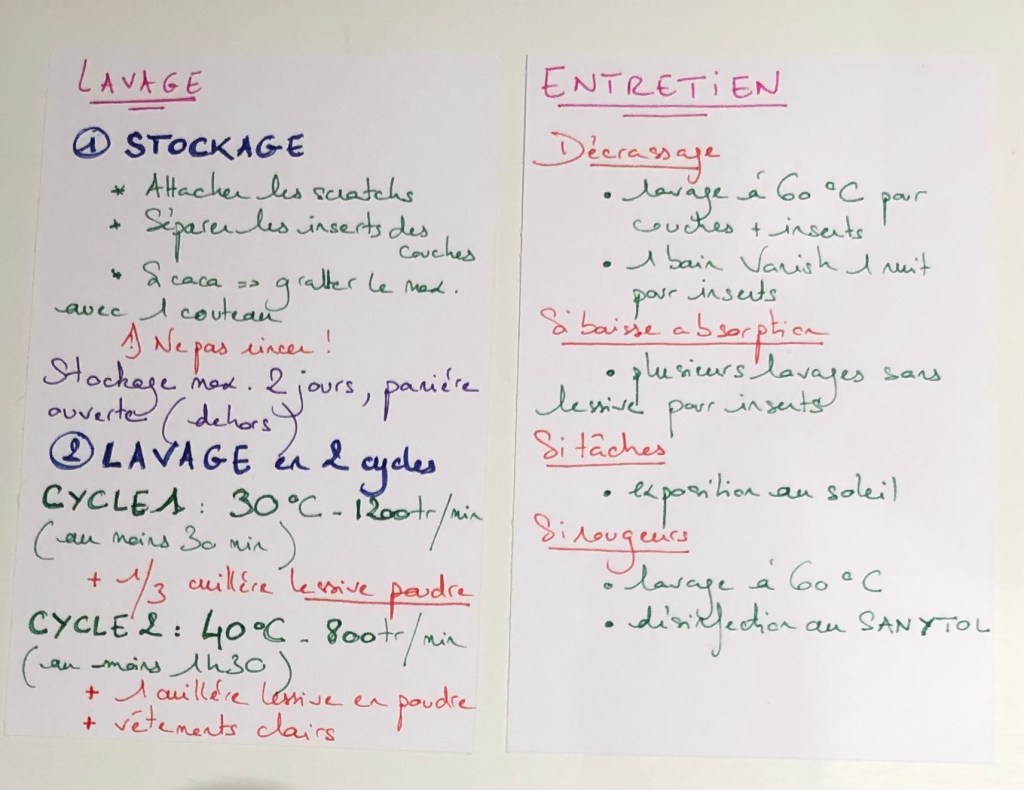 LAVAGE
① STOCKAGE
* Attacher les scratchs
* Séparer les inserts des
couches
* Si caca => gratter le max.
avec 1 couteau
⚠ Ne pas rincer !
Stockage max. 2 jours, panière
ouverte (dehors)
② LAVAGE en 2 cycles
CYCLE 1 : 30°C - 1200tr/min
(au moins 30 min)
+ 1/3 cuillère lessive poudre
CYCLE 2 : 40°C - 800tr/min
(au moins 1h30)
+ 1 cuillère lessive en poudre
+ vêtements clairs
ENTRETIEN
Décrassage
• lavage à 60°C pour
couches + inserts
• 1 bain Vanish 1 nuit
pour inserts
Si baisse absorption
• plusieurs lavages sans
lessive pour inserts
Si tâches
• exposition au soleil
Si rougeurs
• lavage à 60°C
• désinfection au SANYTOL